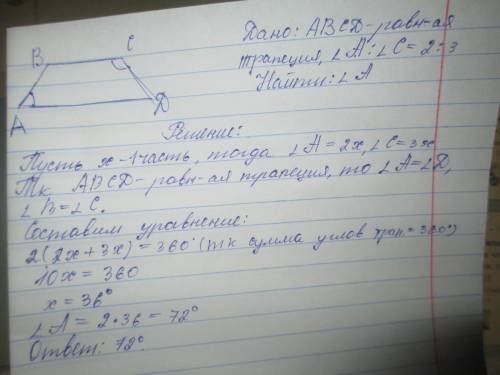 B
C
A
D
Дано: ABCD-равн-ая
трапеция, ∠A:∠C=2:3
Найти: ∠A
Решение:
Пусть x-1часть, тогда ∠A=2x, ∠C=3x
Тк ABCD-равн-ая трапеция, то ∠A=∠D,
∠B=∠C.
Составим уравнение:
2(2x+3x)=360°(тк сумма углов трап.=360°)
10x=360
x=36°
∠A=2·36=72°
Ответ: 72°.